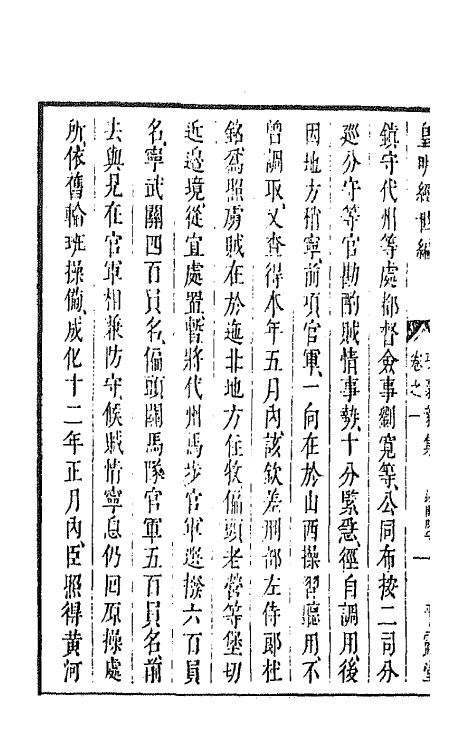 皇明經世編
卷之一
平露堂
鎮守代州等處都督僉事劉寬等公同布按二司分
廵分守等官勘酌賊情事勢十分緊急徑自調用後
因地方稍寧前項官軍一向在於山西操習聽用不
曾調取又查得本年五月內該欽差刑部左侍郎杜
銘奏照虜賊在於迤北地方住牧偏頭老營等堡切
近邊境從宜處置暫將代州馬步官軍選撥六百員
名寧武關四百員名偏頭關馬隊官軍五百員名前
去與見在官軍相兼防守候賊情寧息仍回原操處
所依舊輪班操備成化十二年正月內臣照得黃河